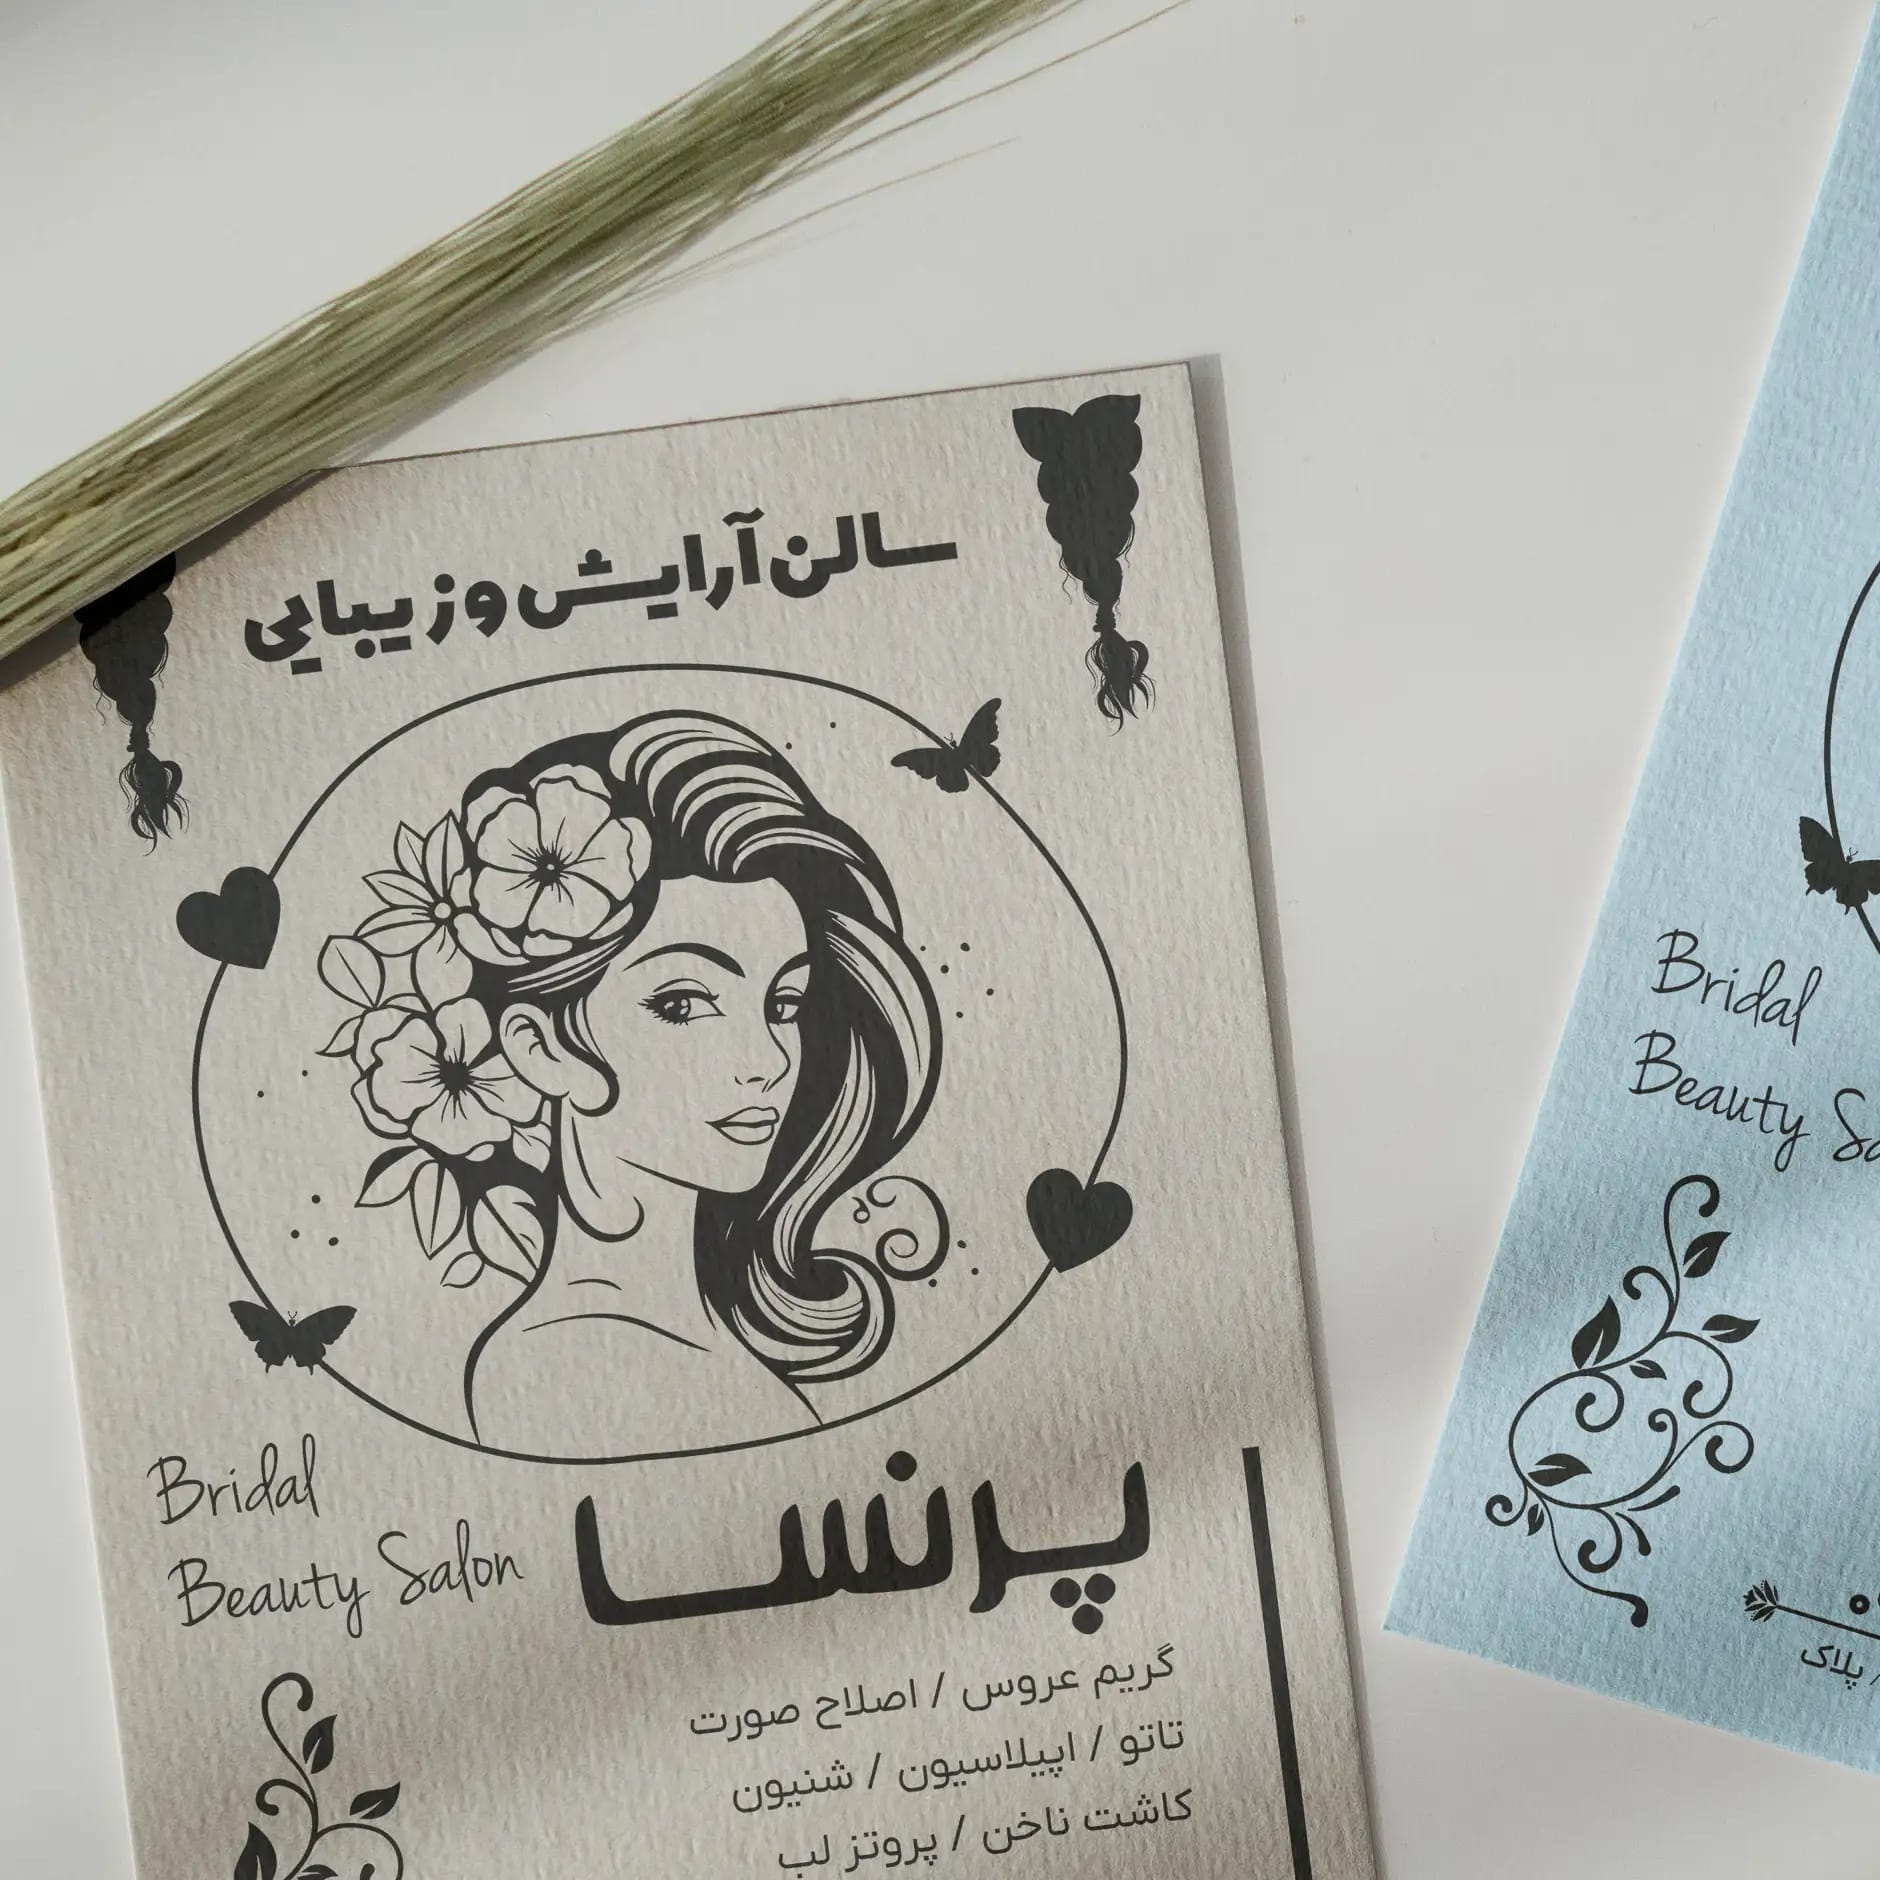 سالن آرایش و زیبایی
Bridal
Beauty Salon
پرنسا
گریم عروس / اصلاح صورت
تاتو / اپیلاسیون / شنیون
کاشت ناخن / پروتز لب
Bridal
Beauty
/ پلاک